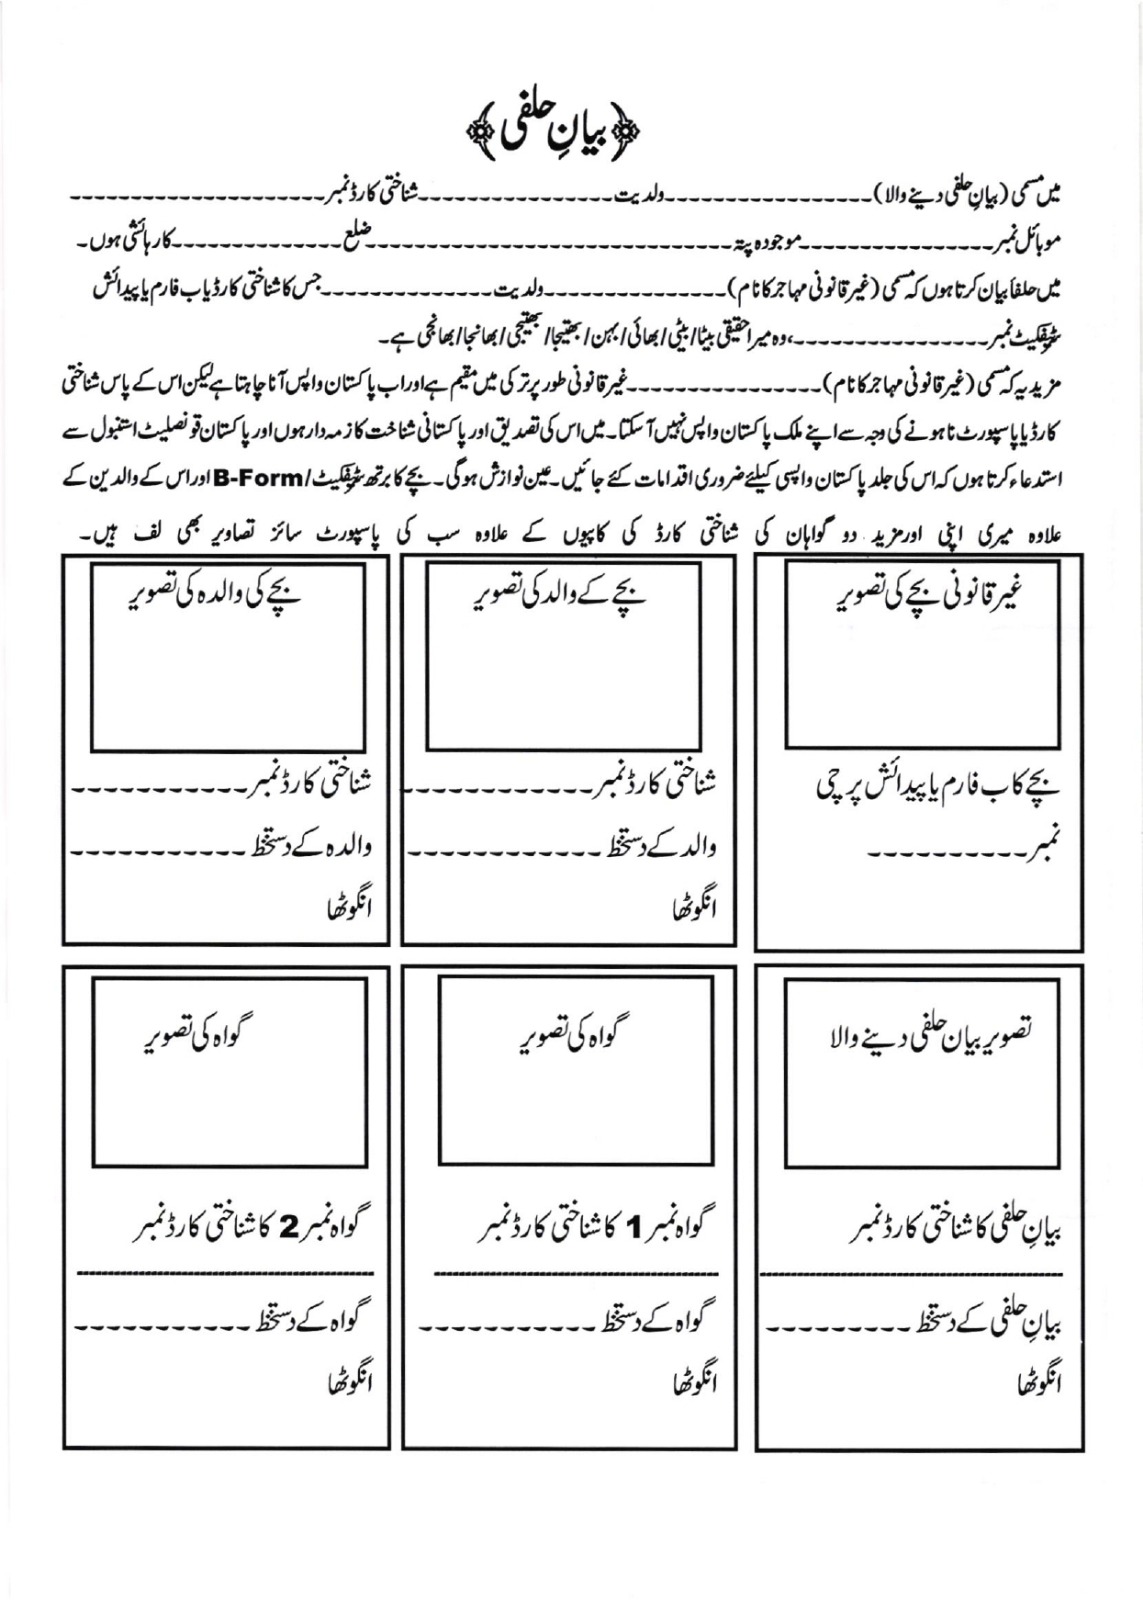 ﴿بیانِ حلفی﴾
میں مسمی (بیانِ حلفی دینے والا)-----------------ولدیت----------------شناختی کارڈ نمبر---------------------
موبائل نمبر----------------موجودہ پتہ------------------------------ضلع--------------کا رہائشی ہوں۔
میں حلفاً بیان کرتا ہوں کہ مسمی (غیر قانونی مہاجر کا نام)---------------ولدیت--------------جس کا شناختی کارڈ یا ب فارم یا پیدائش
سرٹیفکیٹ نمبر----------------،وہ میرا حقیقی بیٹا/بیٹی/بھائی/بہن/بھتیجا/بھتیجی/بھانجا/بھانجی ہے۔
مزید یہ کہ مسمی (غیر قانونی مہاجر کا نام)----------------غیر قانونی طور پر ترکی میں مقیم ہے اور اب پاکستان واپس آنا چاہتا ہے لیکن اس کے پاس شناختی
کارڈ یا پاسپورٹ نا ہونے کی وجہ سے اپنے ملک پاکستان واپس نہیں آ سکتا۔ میں اس کی تصدیق اور پاکستانی شناخت کا زمہ دار ہوں اور پاکستان قونصلیٹ استنبول سے
استدعاء کرتا ہوں کہ اس کی جلد پاکستان واپسی کیلئے ضروری اقدامات کئے جائیں۔ عین نوازش ہوگی۔ بچے کا برتھ سرٹیفکیٹ/B-Form اور اس کے والدین کے
علاوہ میری اپنی اور مزید دو گواہان کی شناختی کارڈ کی کاپیوں کے علاوہ سب کی پاسپورٹ سائز تصاویر بھی لف ہیں۔
غیر قانونی بچے کی تصویر
بچے کا ب فارم یا پیدائش پرچی
نمبر----------
بچے کے والد کی تصویر
شناختی کارڈ نمبر------------
والد کے دستخط ------------
انگوٹھا
بچے کی والدہ کی تصویر
شناختی کارڈ نمبر-----------
والدہ کے دستخط -----------
انگوٹھا
تصویر بیان حلفی دینے والا
بیانِ حلفی کا شناختی کارڈ نمبر
----------------------------
بیانِ حلفی کے دستخط ---------
انگوٹھا
گواہ کی تصویر
گواہ نمبر 1 کا شناختی کارڈ نمبر
----------------------------
گواہ کے دستخط -----------
انگوٹھا
گواہ کی تصویر
گواہ نمبر 2 کا شناختی کارڈ نمبر
----------------------------
گواہ کے دستخط -----------
انگوٹھا